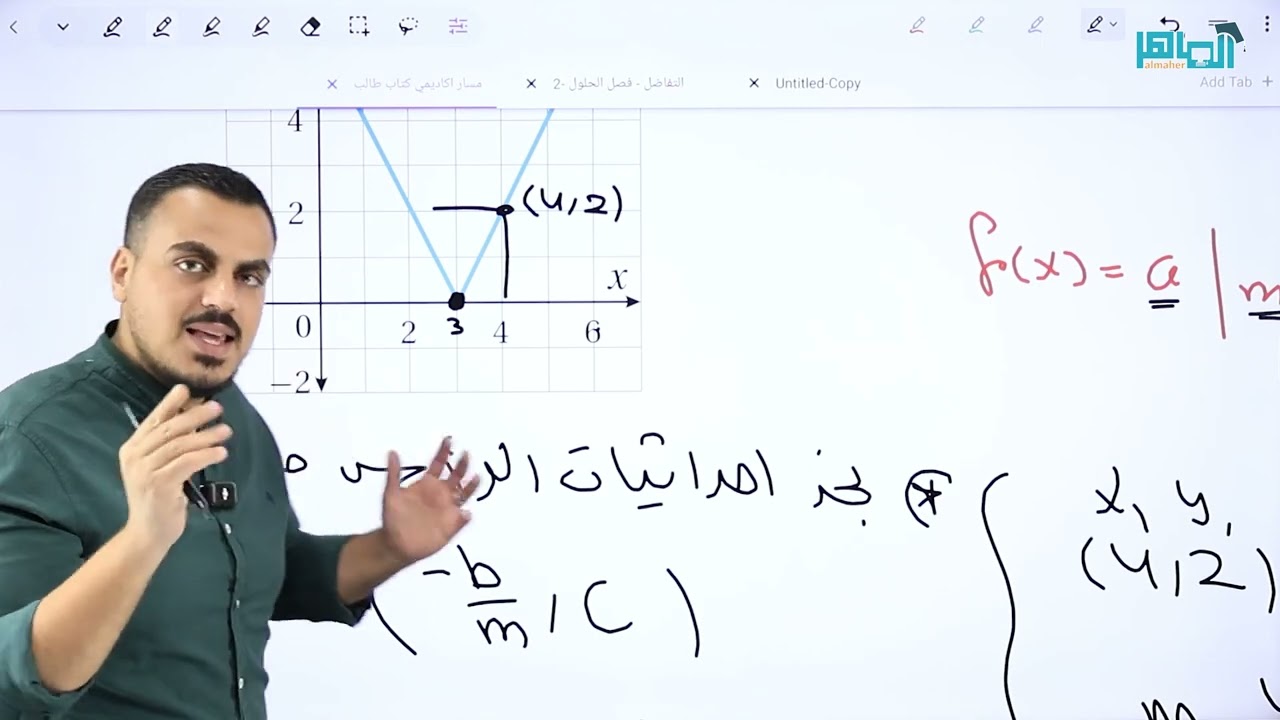 الماهر
almaher
مسار اكاديمي كتاب طالب
التفاضل - فصل الحلول -2
Untitled-Copy
Add Tab
4
2
(4,2)
x
0
2
3
4
6
-2
f(x) = a | m
* نجد احداثيات الرأس
(-b/m , c)
x, y,
(4,2)
m